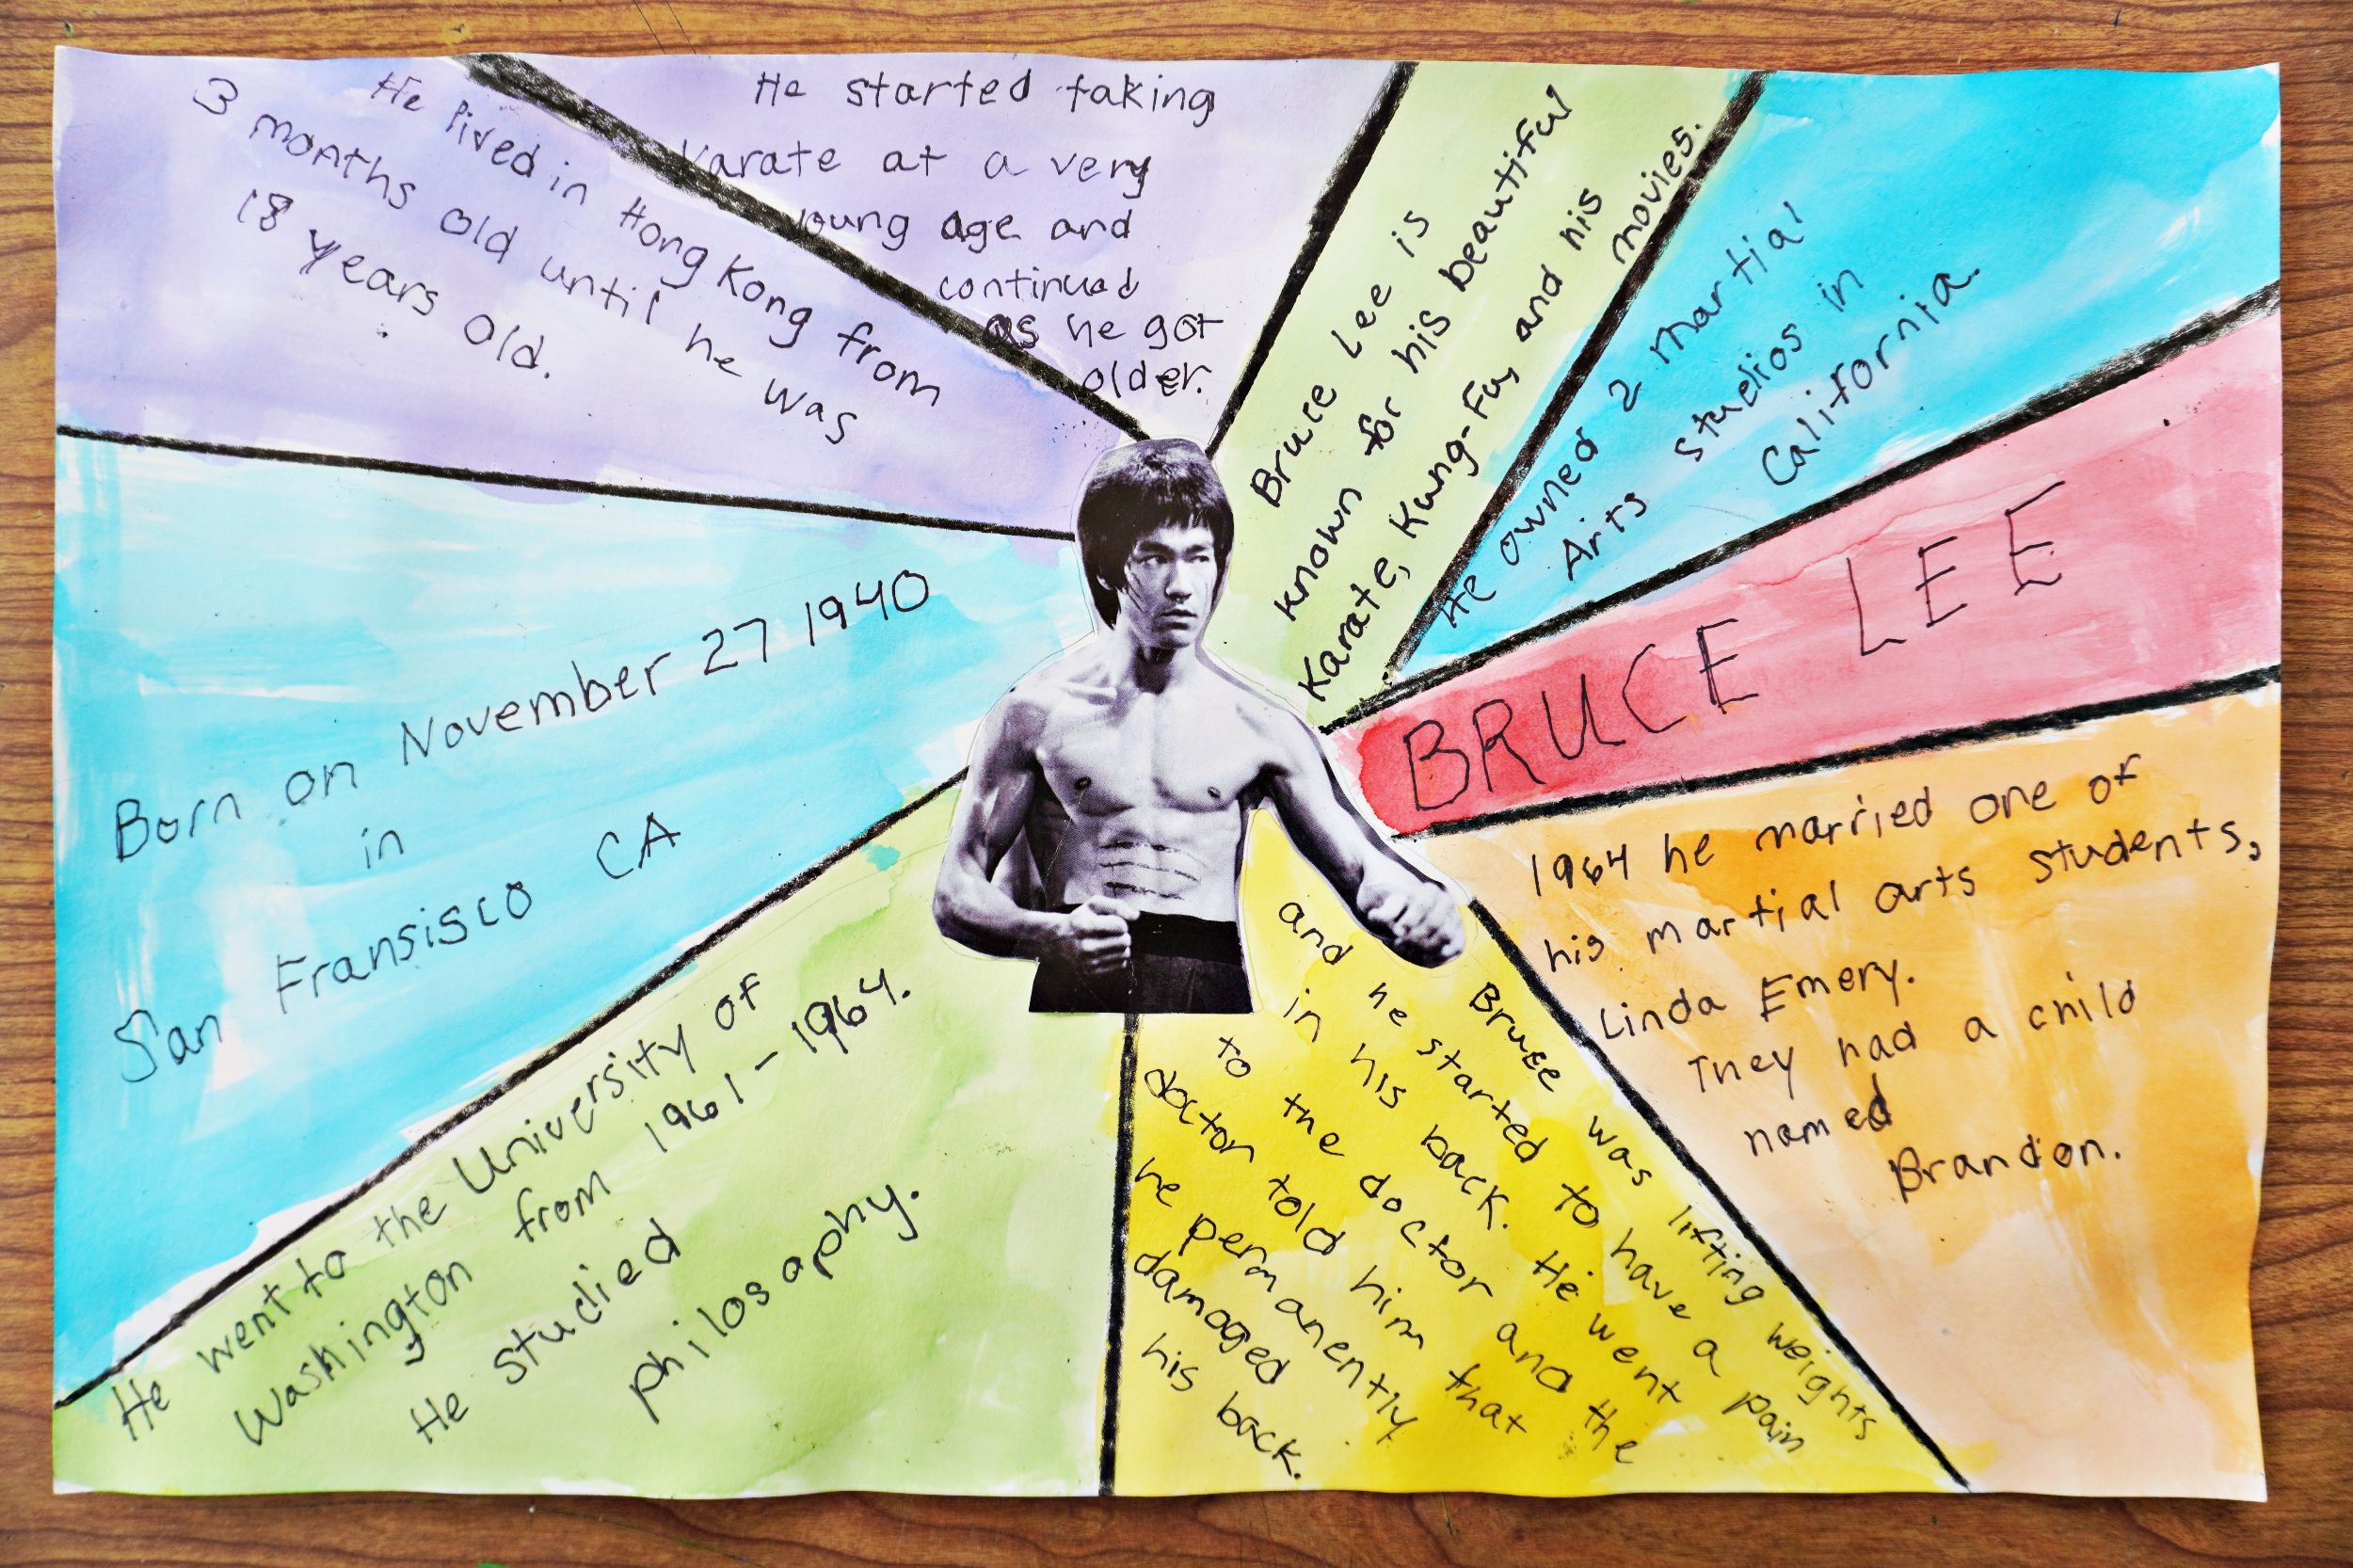 He lived in Hong Kong from
3 months old until he was
18 years old.
He started taking
Karate at a very
young age and
continued
as he got
older.
Bruce Lee is
known for his beautiful
Karate, Kung-Fu, and his
movies.
He owned 2 martial
Arts studios in
California.
BRUCE LEE
1964 he married one of
his martial arts students,
Linda Emery.
They had a child
named
Brandon.
Bruce was lifting weights
and he started to have a pain
in his back. He went
to the doctor and the
doctor told him that
he permanently
damaged
his back.
He went to the University of
Washington from 1961-1964.
He studied
philosaphy.
Born on November 27 1940
in
San Fransisco CA